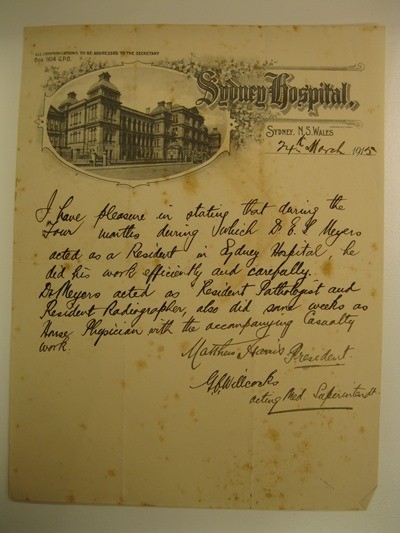 ALL COMMUNICATIONS TO BE ADDRESSED TO THE SECRETARY
BOX 1614 G.P.O.
Sydney Hospital,
SYDNEY, N.S. WALES
24th March 1915
I have pleasure in stating that during the
four months during which Dr E. S. Meyers
acted as a Resident in Sydney Hospital, he
did his work efficiently and carefully.
Dr Meyers acted as Resident Pathologist and
Resident Radiographer, also did some weeks as
House Physician with the accompanying Casualty
work
Matthew Harris President
Willcocks
acting Med Superintendt.